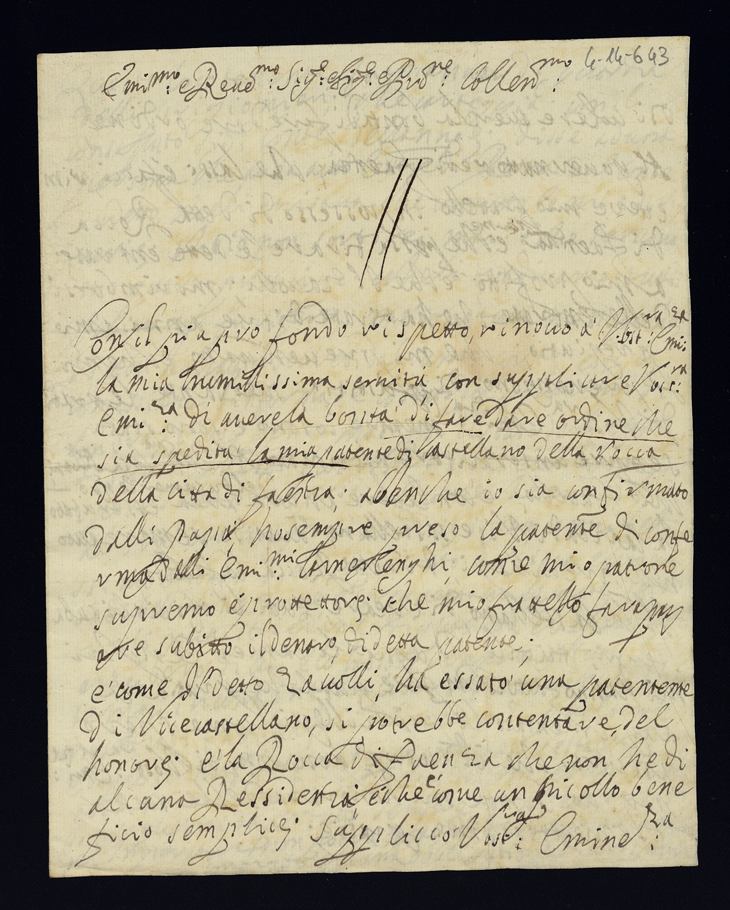 4-14-643
Emi:mo e Reud:mo Sig:re Sig:re e P:rone Collen:mo
Con il più pro fondo rispetto, rinouo à Vost:ra Emi:za
la mia humillissima seruitù con supplicare Vost:ra
Emi:za di auere la bontà di fare dare ordine che
sia spedita la mia patente di Castellano della rocca
della citta di faenza. abenche io sia confirmato
dalli Papi, ho sempre preso la patente di confe
rma dalli Emi:mi Camerlenghi, come mio patrone
supremo é protettore; che mio frattello fara pag
are subitto il denro, di detta patente;
é come Il detto Zauolli, ha essato una patentente
di Vicecastellano, si potrebbe contentare, del
honore; é la Rocca di Faenza che non he di
alcuna Ressidenza, é che é come un piccollo bene
ficio semplice; Supplico Vost:ra Emine:za